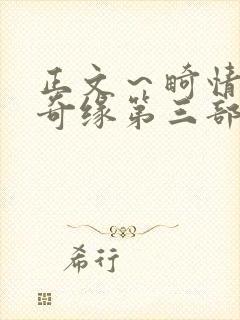 正文～畸情
奇缘第三部
希行